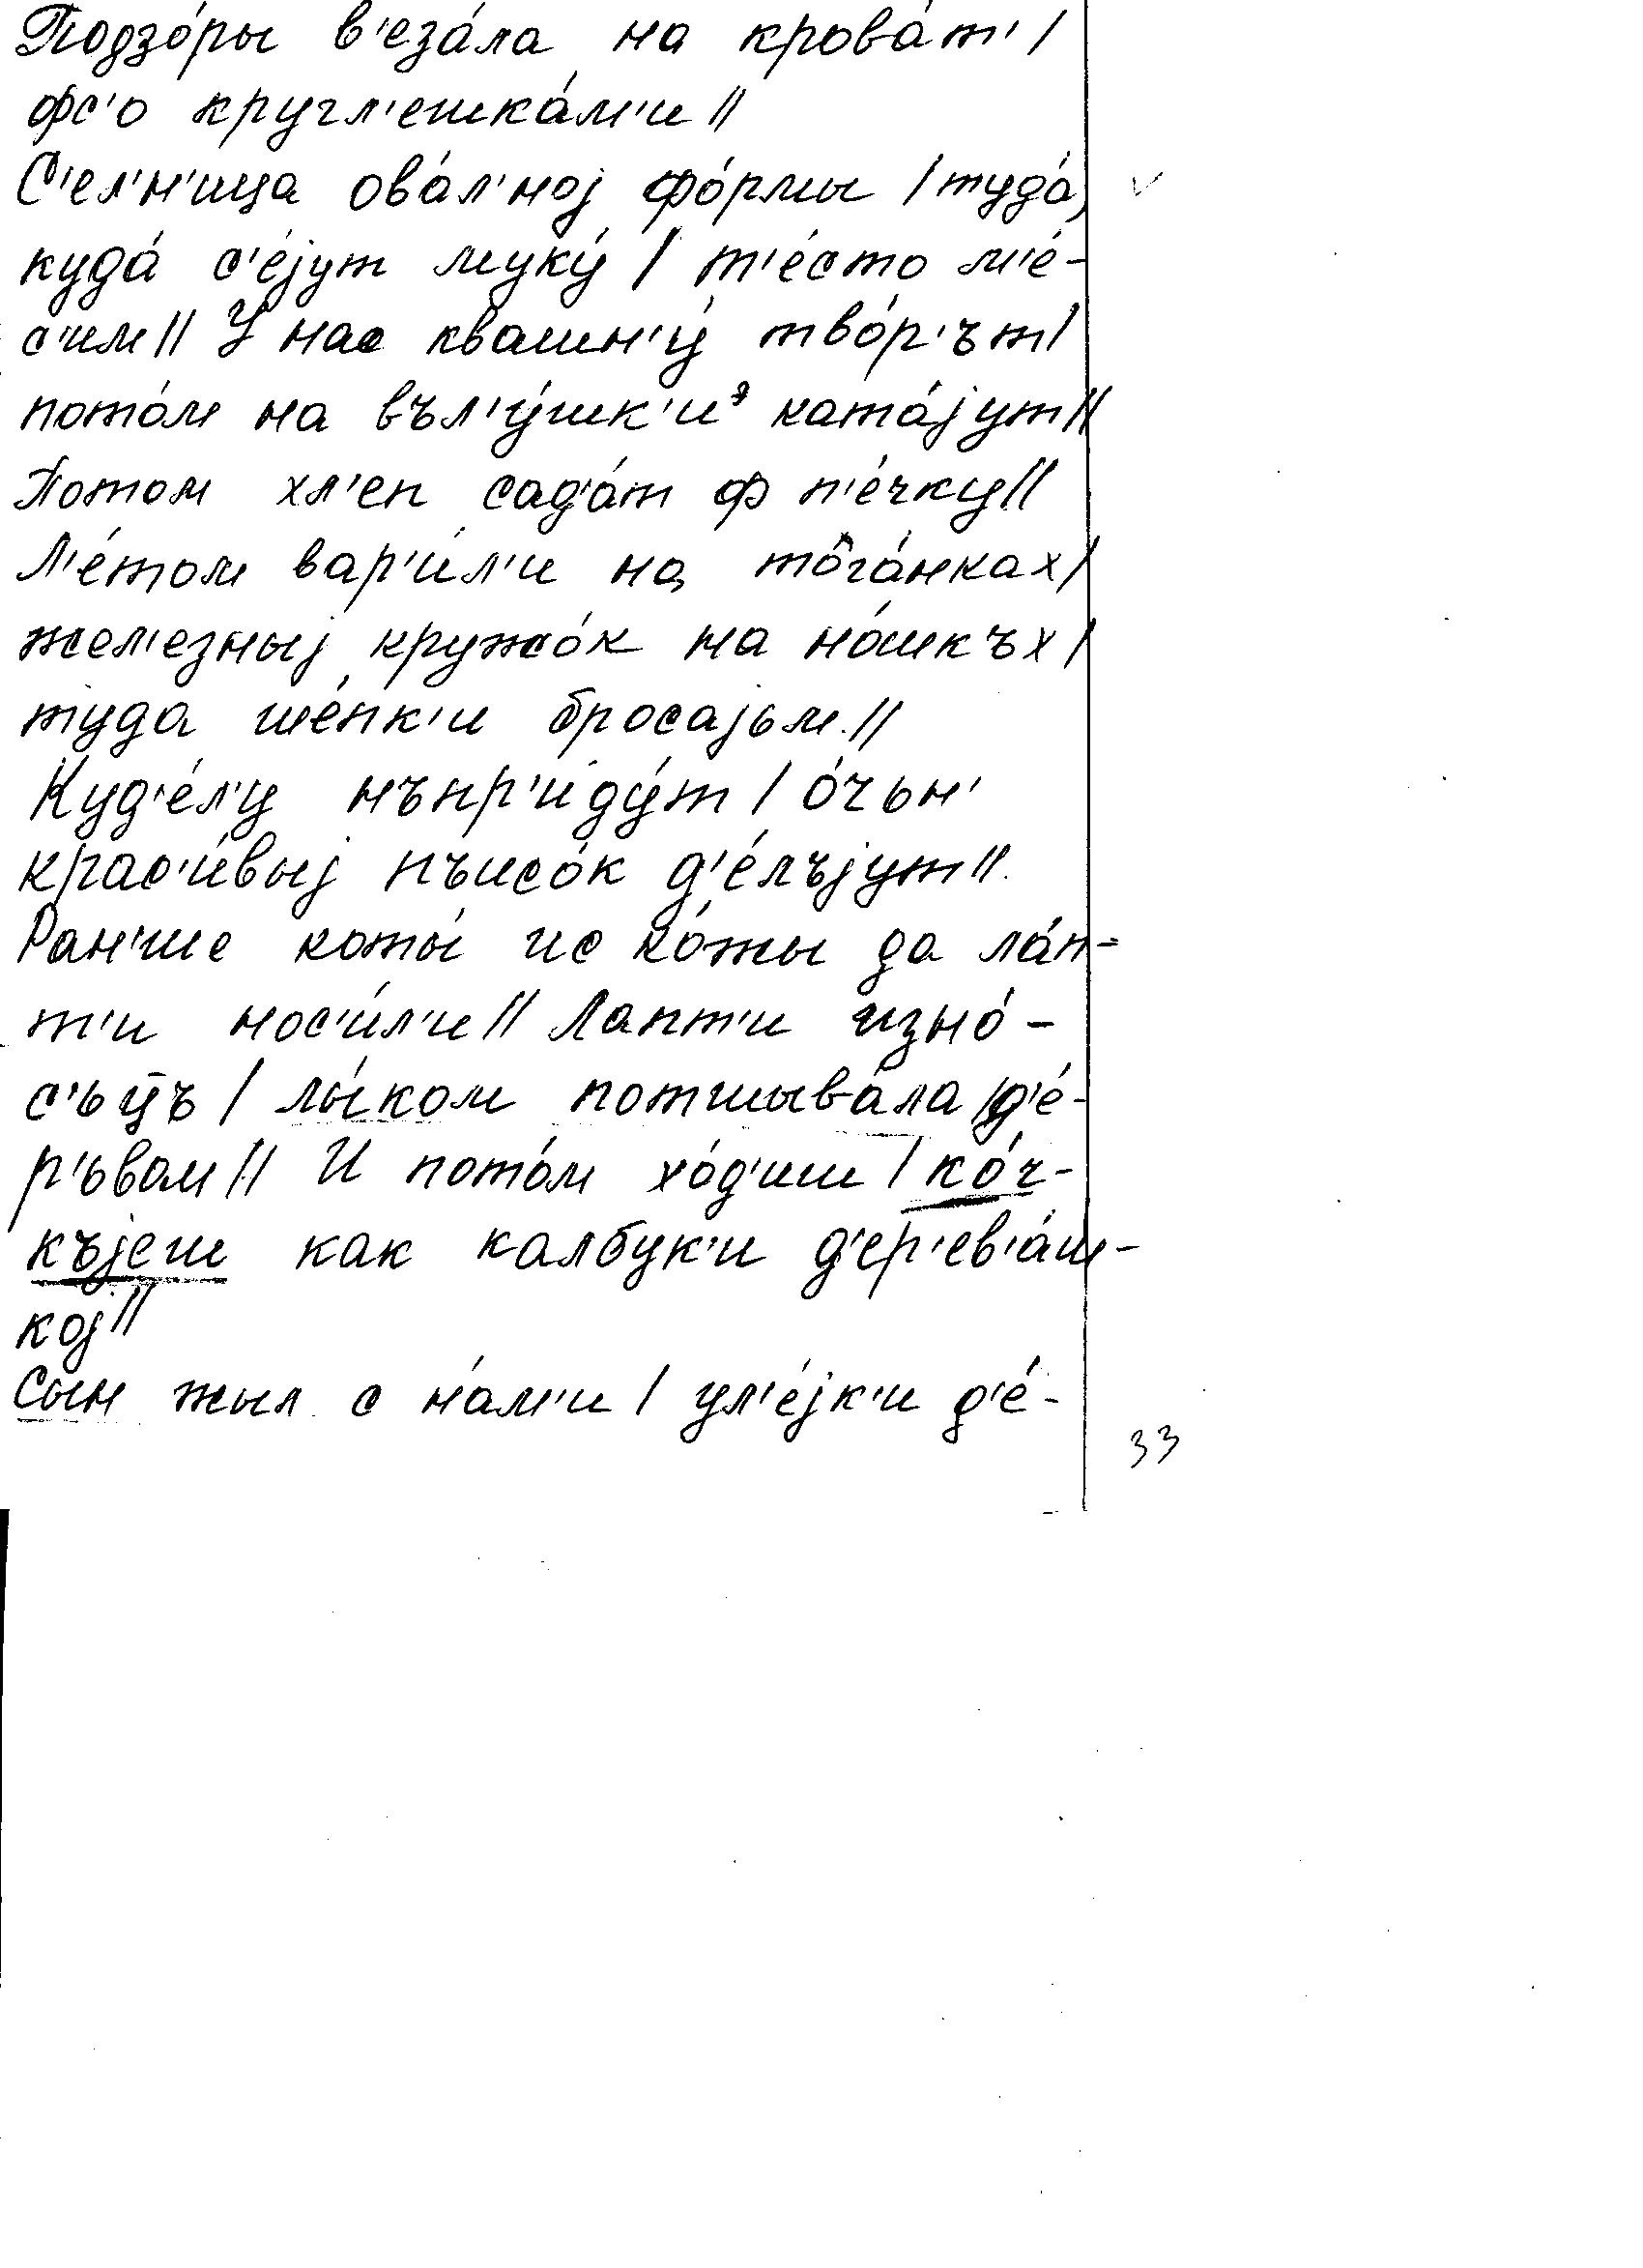 Подзо́ры в'еза́ла на крова́т' /
фс'о кругл'ешка́м'и //
С'ел'н'ица ова́л'ној фо́рмы / туда́,
куда́ с'е́јут муку́ / т'е́сто м'е́-
с'им // У нас квашн'у́ тво́р'ът /
пото́м на въл'у́шк'и ката́јут //
Потом хл'еп сад'а́т ф п'е́чку //
Л'е́том вар'и́л'и на тога́нках /
жел'езныј кружо́к на но́шкъх /
туда ше́пк'и бросајьм. //
Куд'е́л'у нъпр'иду́т / о́чьн'
крас'и́выј пъисо́к д'е́лъјут //.
Ран'ше коты́ ис ко́жы да ла́п-
т'и нос'и́л'и // Лапт'и изно́-
с'ьцъ / лы́ком потшыва́ла / д'е́-
р'ьвом // И пото́м хо́д'иш / ко́ч-
къјеш как калбук'и д'ер'ев'а́ш-
кој //
Сын жыл с на́м'и / ул'е́јк'и д'е́-
33